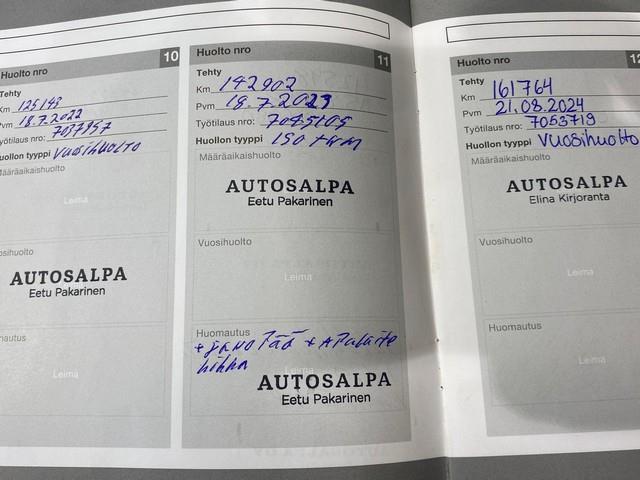 10
Huolto nro
Tehty
Km 125143
Pvm 18.7.2022
Työtilaus nro: 7037957
Huollon tyyppi Vuosihuolto
Määräaikaishuolto
Leima
osihuolto
AUTOSALPA
Eetu Pakarinen
nautus
Leima
11
Huolto nro
Tehty
Km 142902
Pvm 18.7.2023
Työtilaus nro: 7045105
Huollon tyyppi 150 tkm
Määräaikaishuolto
AUTOSALPA
Eetu Pakarinen
Vuosihuolto
Leima
Huomautus
+ jako Pää + Apulaite
hihna
Leima
AUTOSALPA
Eetu Pakarinen
12
Huolto nro
Tehty
Km 161764
Pvm 21.08.2024
Työtilaus nro: 7053719
Huollon tyyppi Vuosihuolto
Määräaikaishuolto
AUTOSALPA
Elina Kirjoranta
Vuosihuolto
Leima
Huomautus
Leima